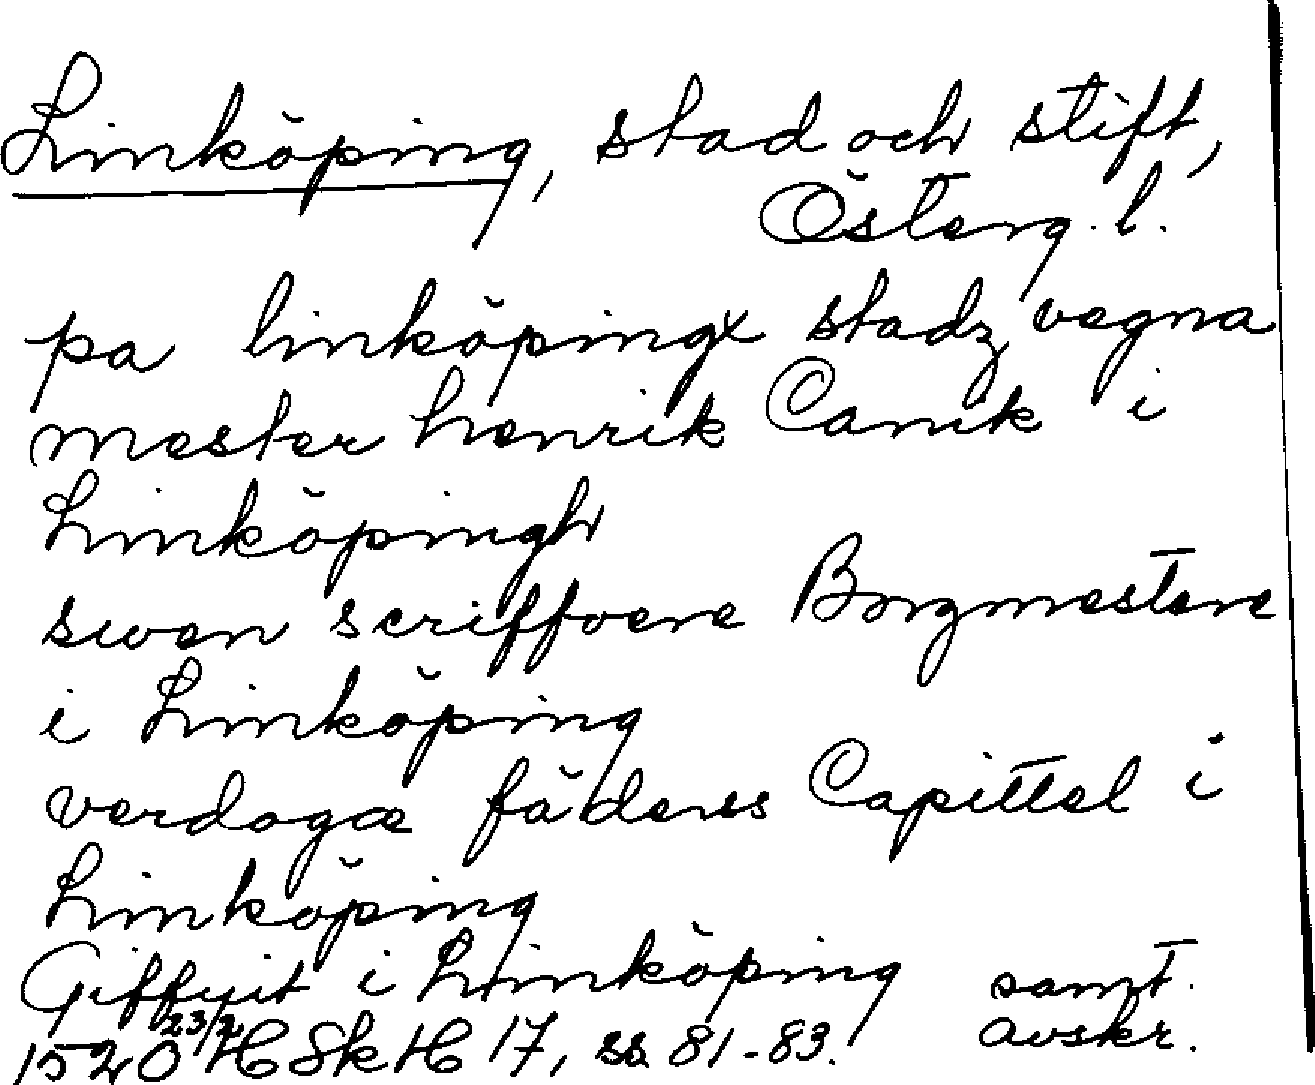 Linköping, stad och stift,
Österg. l.
pa linköpingx stadz vegna
mester henrik Canik i
Linköpingh
swen scriffvere Borgmestere
i Linköping
verdogæ fäders Capittel i
Linköping
Giffuit i Linköping samt.
avskr.
1520 23/2 HSkH 17, ss. 81-83.